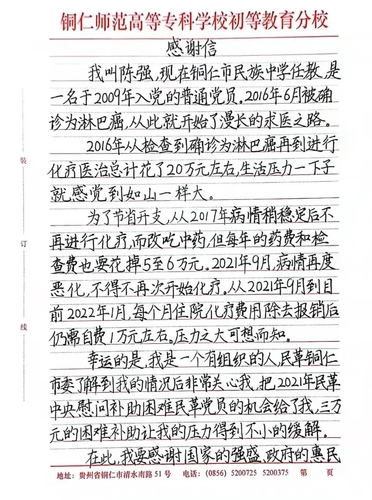 铜仁师范高等专科学校初等教育分校
感谢信
我叫陈强,现在铜仁市民族中学任教,是
一名于2009年入党的普通党员。2016年6月被确
诊为淋巴癌,从此就开始了漫长的求医之路。
2016年从检查到确诊为淋巴癌再到进行
化疗医治总计花了20万元左右,生活压力一下子
就感觉到如山一样大。
为了节省开支,从2017年病情稍稳定后不
再进行化疗,而改吃中药,但每年的药费和检
查费也要花掉5至6万元。2021年9月,病情再度
恶化,不得不再次开始化疗,从2021年9月到目
前2022年1月,每个月住院化疗费用除去报销后
仍需自费1万元左右。压力之大可想而知。
幸运的是,我是一个有组织的人,民革铜仁
市委了解到我的情况后非常关心我,把2021年民革
中央慰问补助困难民革党员的机会给了我,三万
元的困难补助让我的压力得到不小的缓解。
在此,我要感谢国家的强盛,政府的惠民
装
订
线
地址:贵州省铜仁市清水南路51号 电话:(0856) 5200725 5200375 第 页